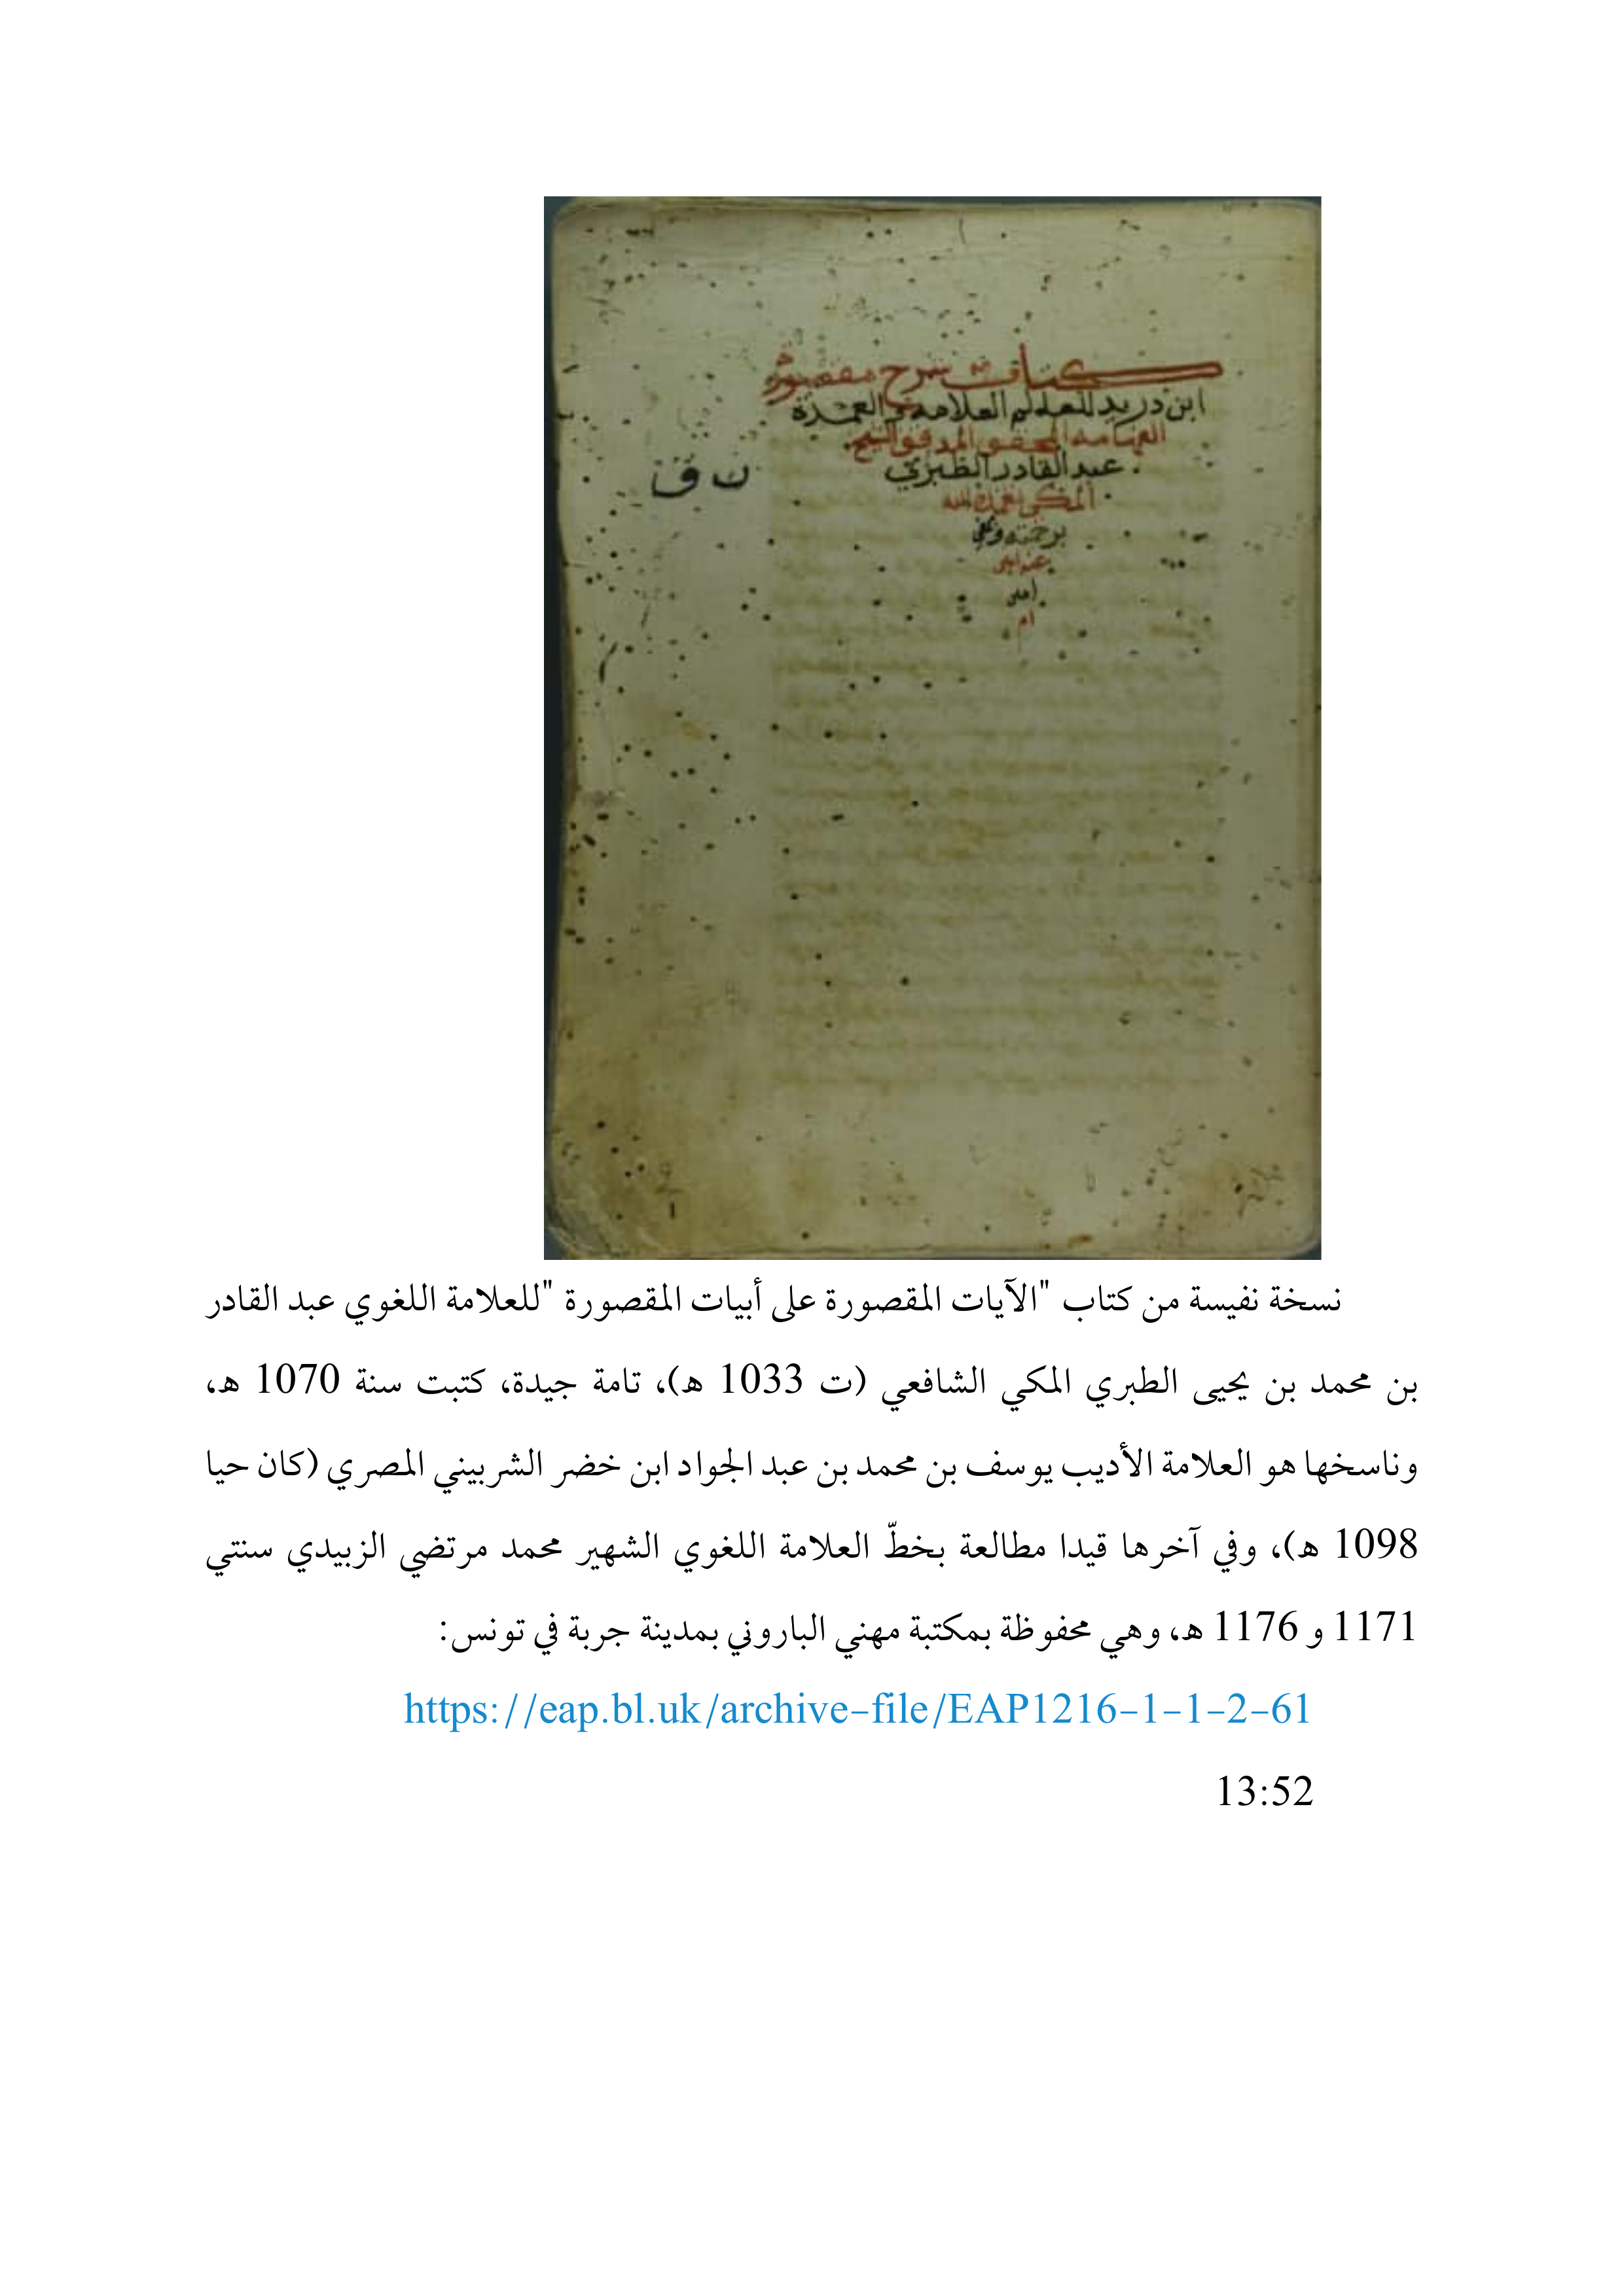 كتاب شرح مقصورة
ابن دريد للعالم العلامة والعمدة
الفهامة المحقق المدقق الشيخ
عبد القادر الطبري
المكي تغمده الله
برحمته وعفى
عنه
ن ق
نسخة نفيسة من كتاب "الآيات المقصورة على أبيات المقصورة "للعلامة اللغوي عبد القادر
بن محمد بن يحيى الطبري المكي الشافعي (ت 1033 هـ)، تامة جيدة، كتبت سنة 1070 هـ،
وناسخها هو العلامة الأديب يوسف بن محمد بن عبد الجواد ابن خضر الشربيني المصري (كان حيا
1098 هـ)، وفي آخرها قيدا مطالعة بخطّ العلامة اللغوي الشهير محمد مرتضي الزبيدي سنتي
1171 و 1176 هـ، وهي محفوظة بمكتبة مهني الباروني بمدينة جربة في تونس:
https://eap.bl.uk/archive-file/EAP1216-1-1-2-61
13:52